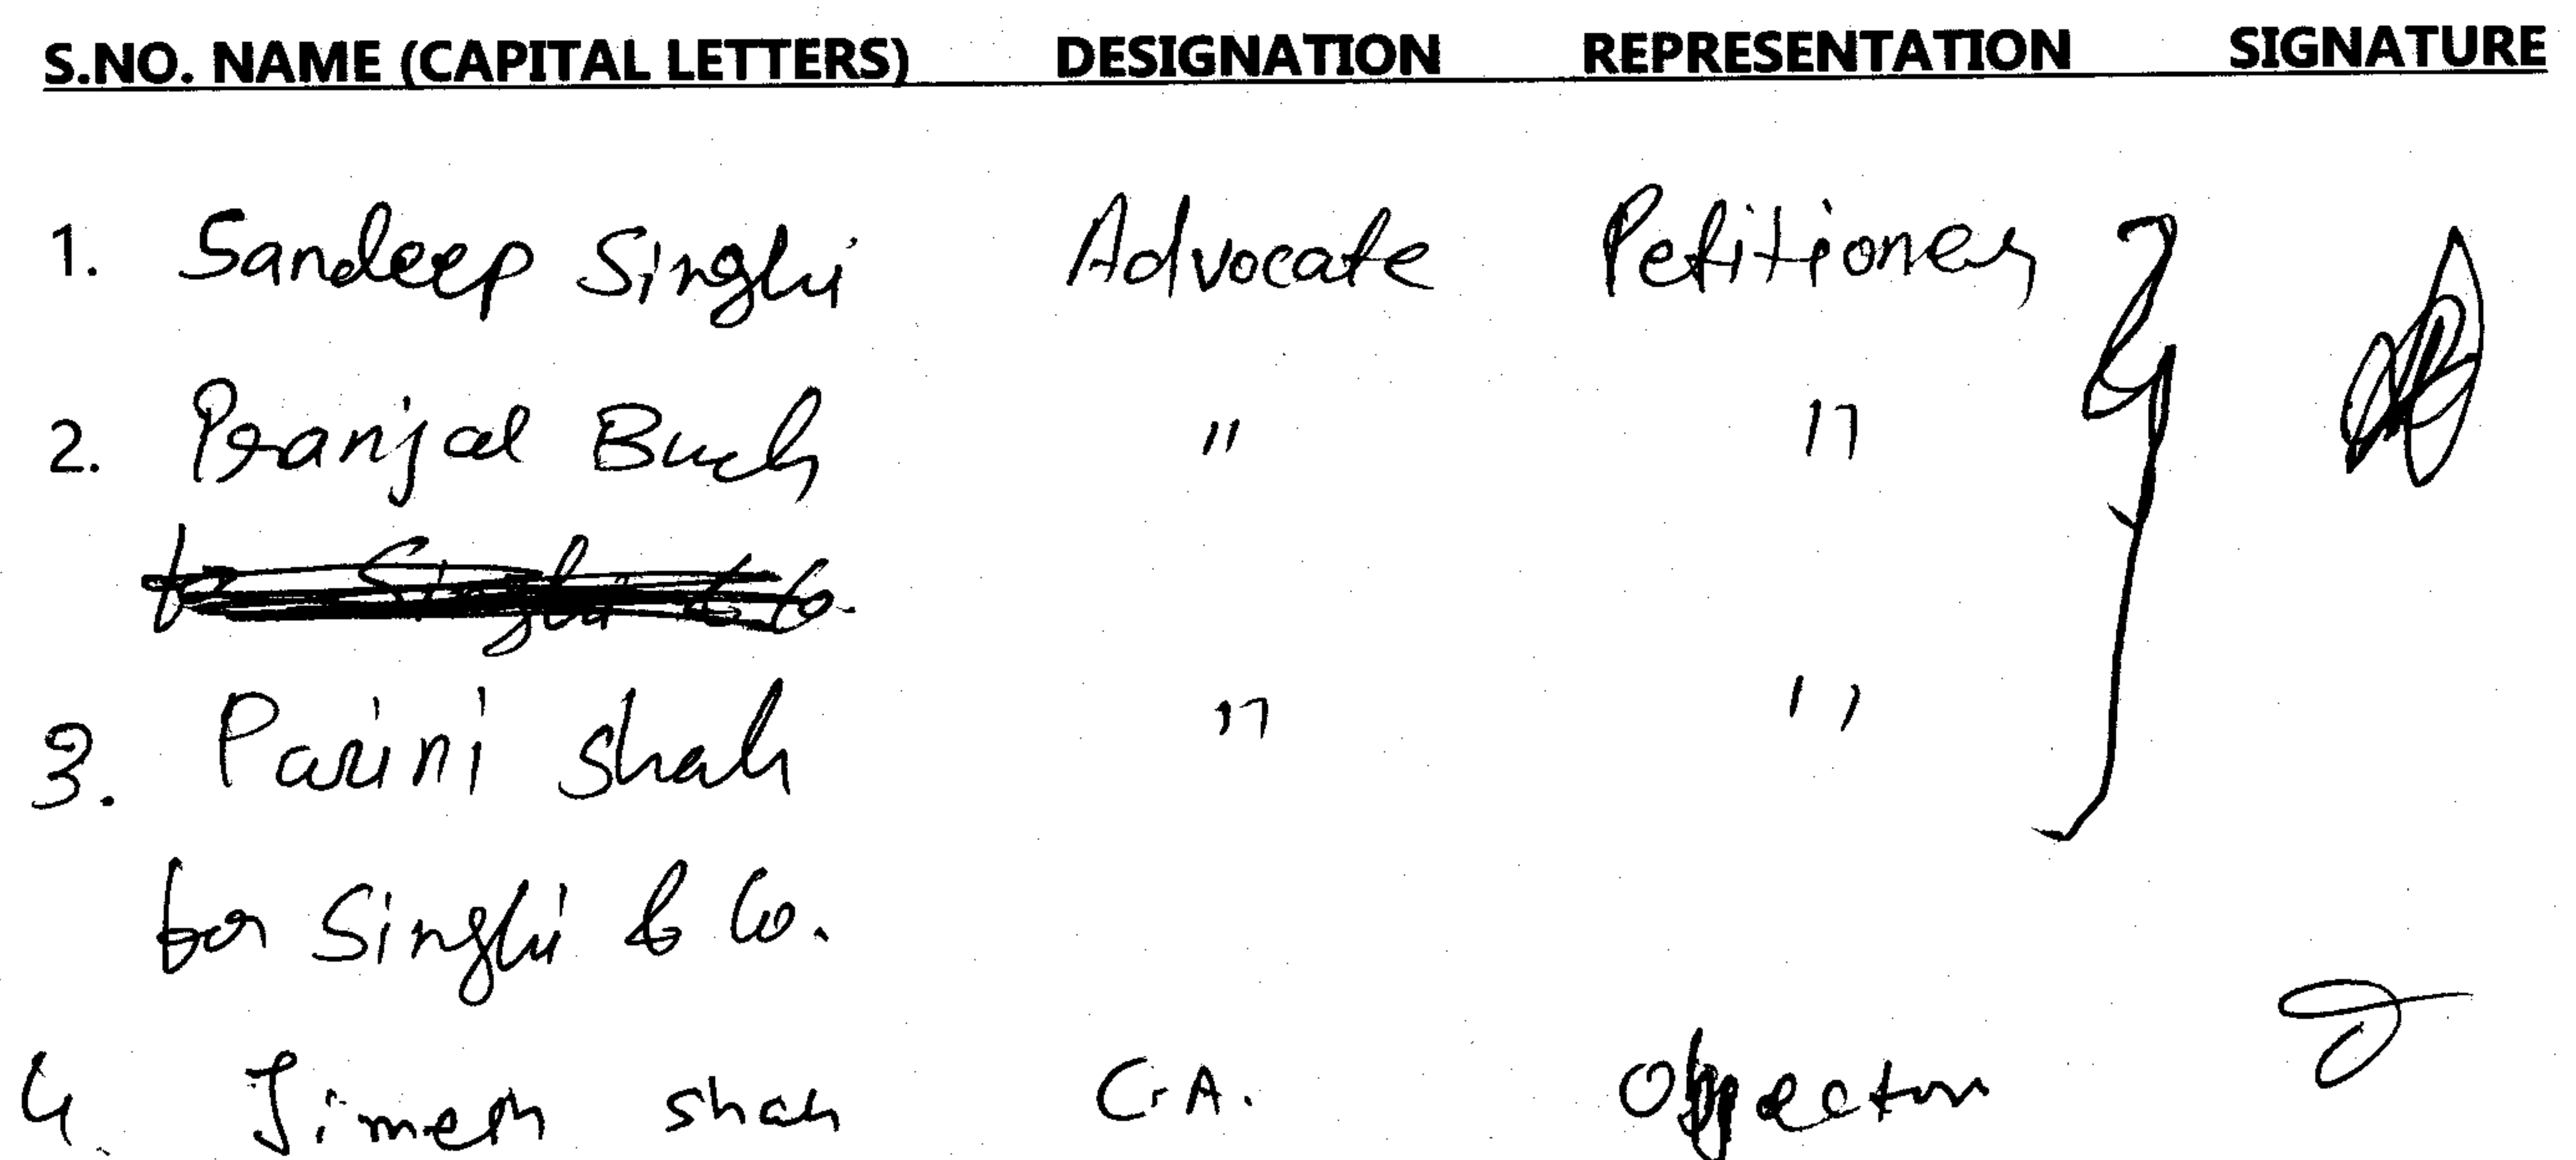 S.NO. NAME (CAPITAL LETTERS) DESIGNATION REPRESENTATION SIGNATURE
1. Sandeep Singhi Advocate Petitioner
2. Pranjal Buch " "
3. Parini Shah " "
for Singhi & Co.
4. Jimesh Shah C.A. Objector